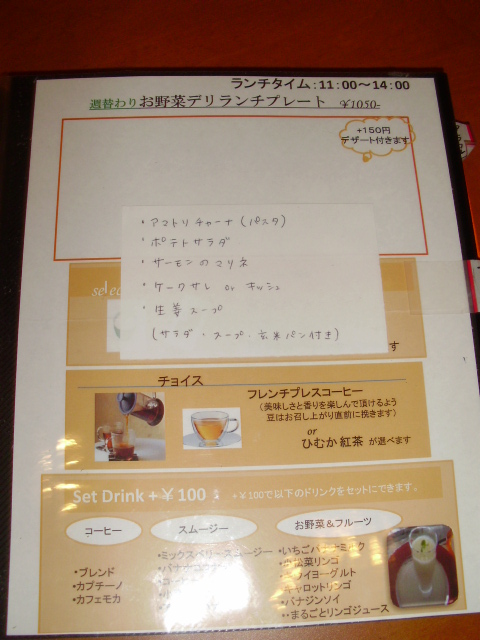 ランチタイム：11:00～14:00
週替わりお野菜デリランチプレート ￥1050-
+150円
デザート付きます
・アマトリチャーナ(パスタ)
・ポテトサラダ
・サーモンのマリネ
・ケークサレ or キッシュ
・生姜スープ
(サラダ・スープ・玄米パン付き)
す
チョイス
フレンチプレスコーヒー
(美味しさと香りを楽しんで頂けるよう
豆はお召し上がり直前に挽きます)
or
ひむか紅茶 が選べます
Set Drink +￥100
+￥100で以下のドリンクをセットにできます。
コーヒー
・ブレンド
・カプチーノ
・カフェモカ
スムージー
・ミックスベリースムージー
お野菜＆フルーツ
・いちごバナナミルク
・小松菜リンゴ
・キウイヨーグルト
・キャロットリンゴ
・バナジンソイ
・まるごとリンゴジュース